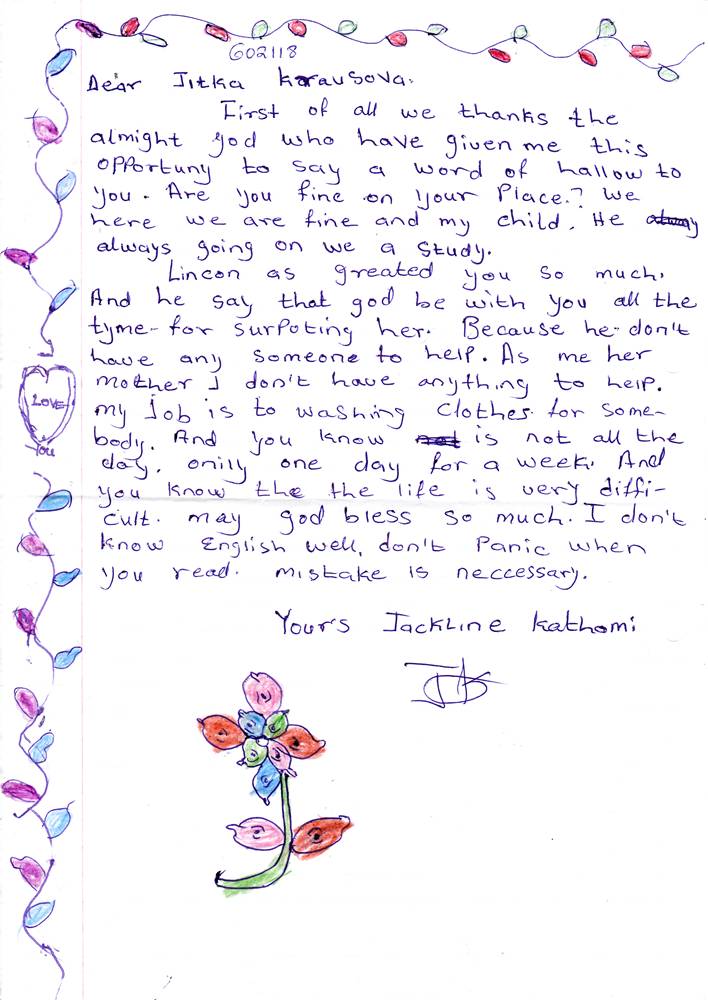 G02118
Dear Jitka Korausova.
First of all we thanks the
almight god who have given me this
opportuny to say a word of hallow to
you. Are you fine on your Place.? we
here we are fine and my child. He
always going on we a study.
Lincon as greated you so much.
And he say that god be with you all the
tyme-for surpoting her. Because he-don't
have any someone to help. As me her
LOVE
You
mother I don't have anything to help.
my Job is to washing clothes for some-
body. And you know is not all the
day. onily one day for a week. And
you know the the life is very diffi-
cult. may god bless so much. I don't
know English well, don't Panic when
you read. mistake is neccessary.
Yours Jackline Kathomi